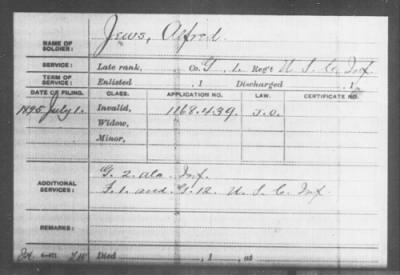 NAME OF SOLDIER: Jews, Alfred.
SERVICE: Late rank, Co. G, 1. Reg't U. S. C. Inf.
TERM OF SERVICE: Enlisted , 1 Discharged , 1
DATE OF FILING. CLASS. APPLICATION NO. LAW. CERTIFICATE NO.
1895 July 1. Invalid, 1168.439.
Widow,
Minor,
ADDITIONAL SERVICES: G. 2. Ala. Inf.
F. 1. and G. 12. U. S. C. Inf.
REMARKS:
Died , 1 , at